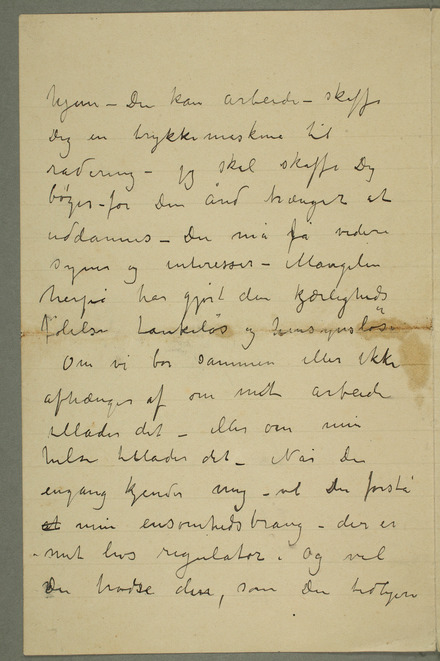 hjem – Du kan arbeide – skaffe
Dig en trykkemaskine til
radering – jeg skal skaffe Dig
bøger – for Din Ånd trænger at
uddannes – Du må få videre
syner og interesser – Mangelen
herpå har gjort din kjærligheds
følelse tankeløs og hensynsløs
Om vi bor sammen eller ikke
afhænger af om mit arbeide
tillader det – eller om min
helse tillader det – Når Du
engang kjender mig – vil Du forstå
at min ensomhedstrang – der er
mit livs regulator. Og vil
Du trodse den, som Du tidligere